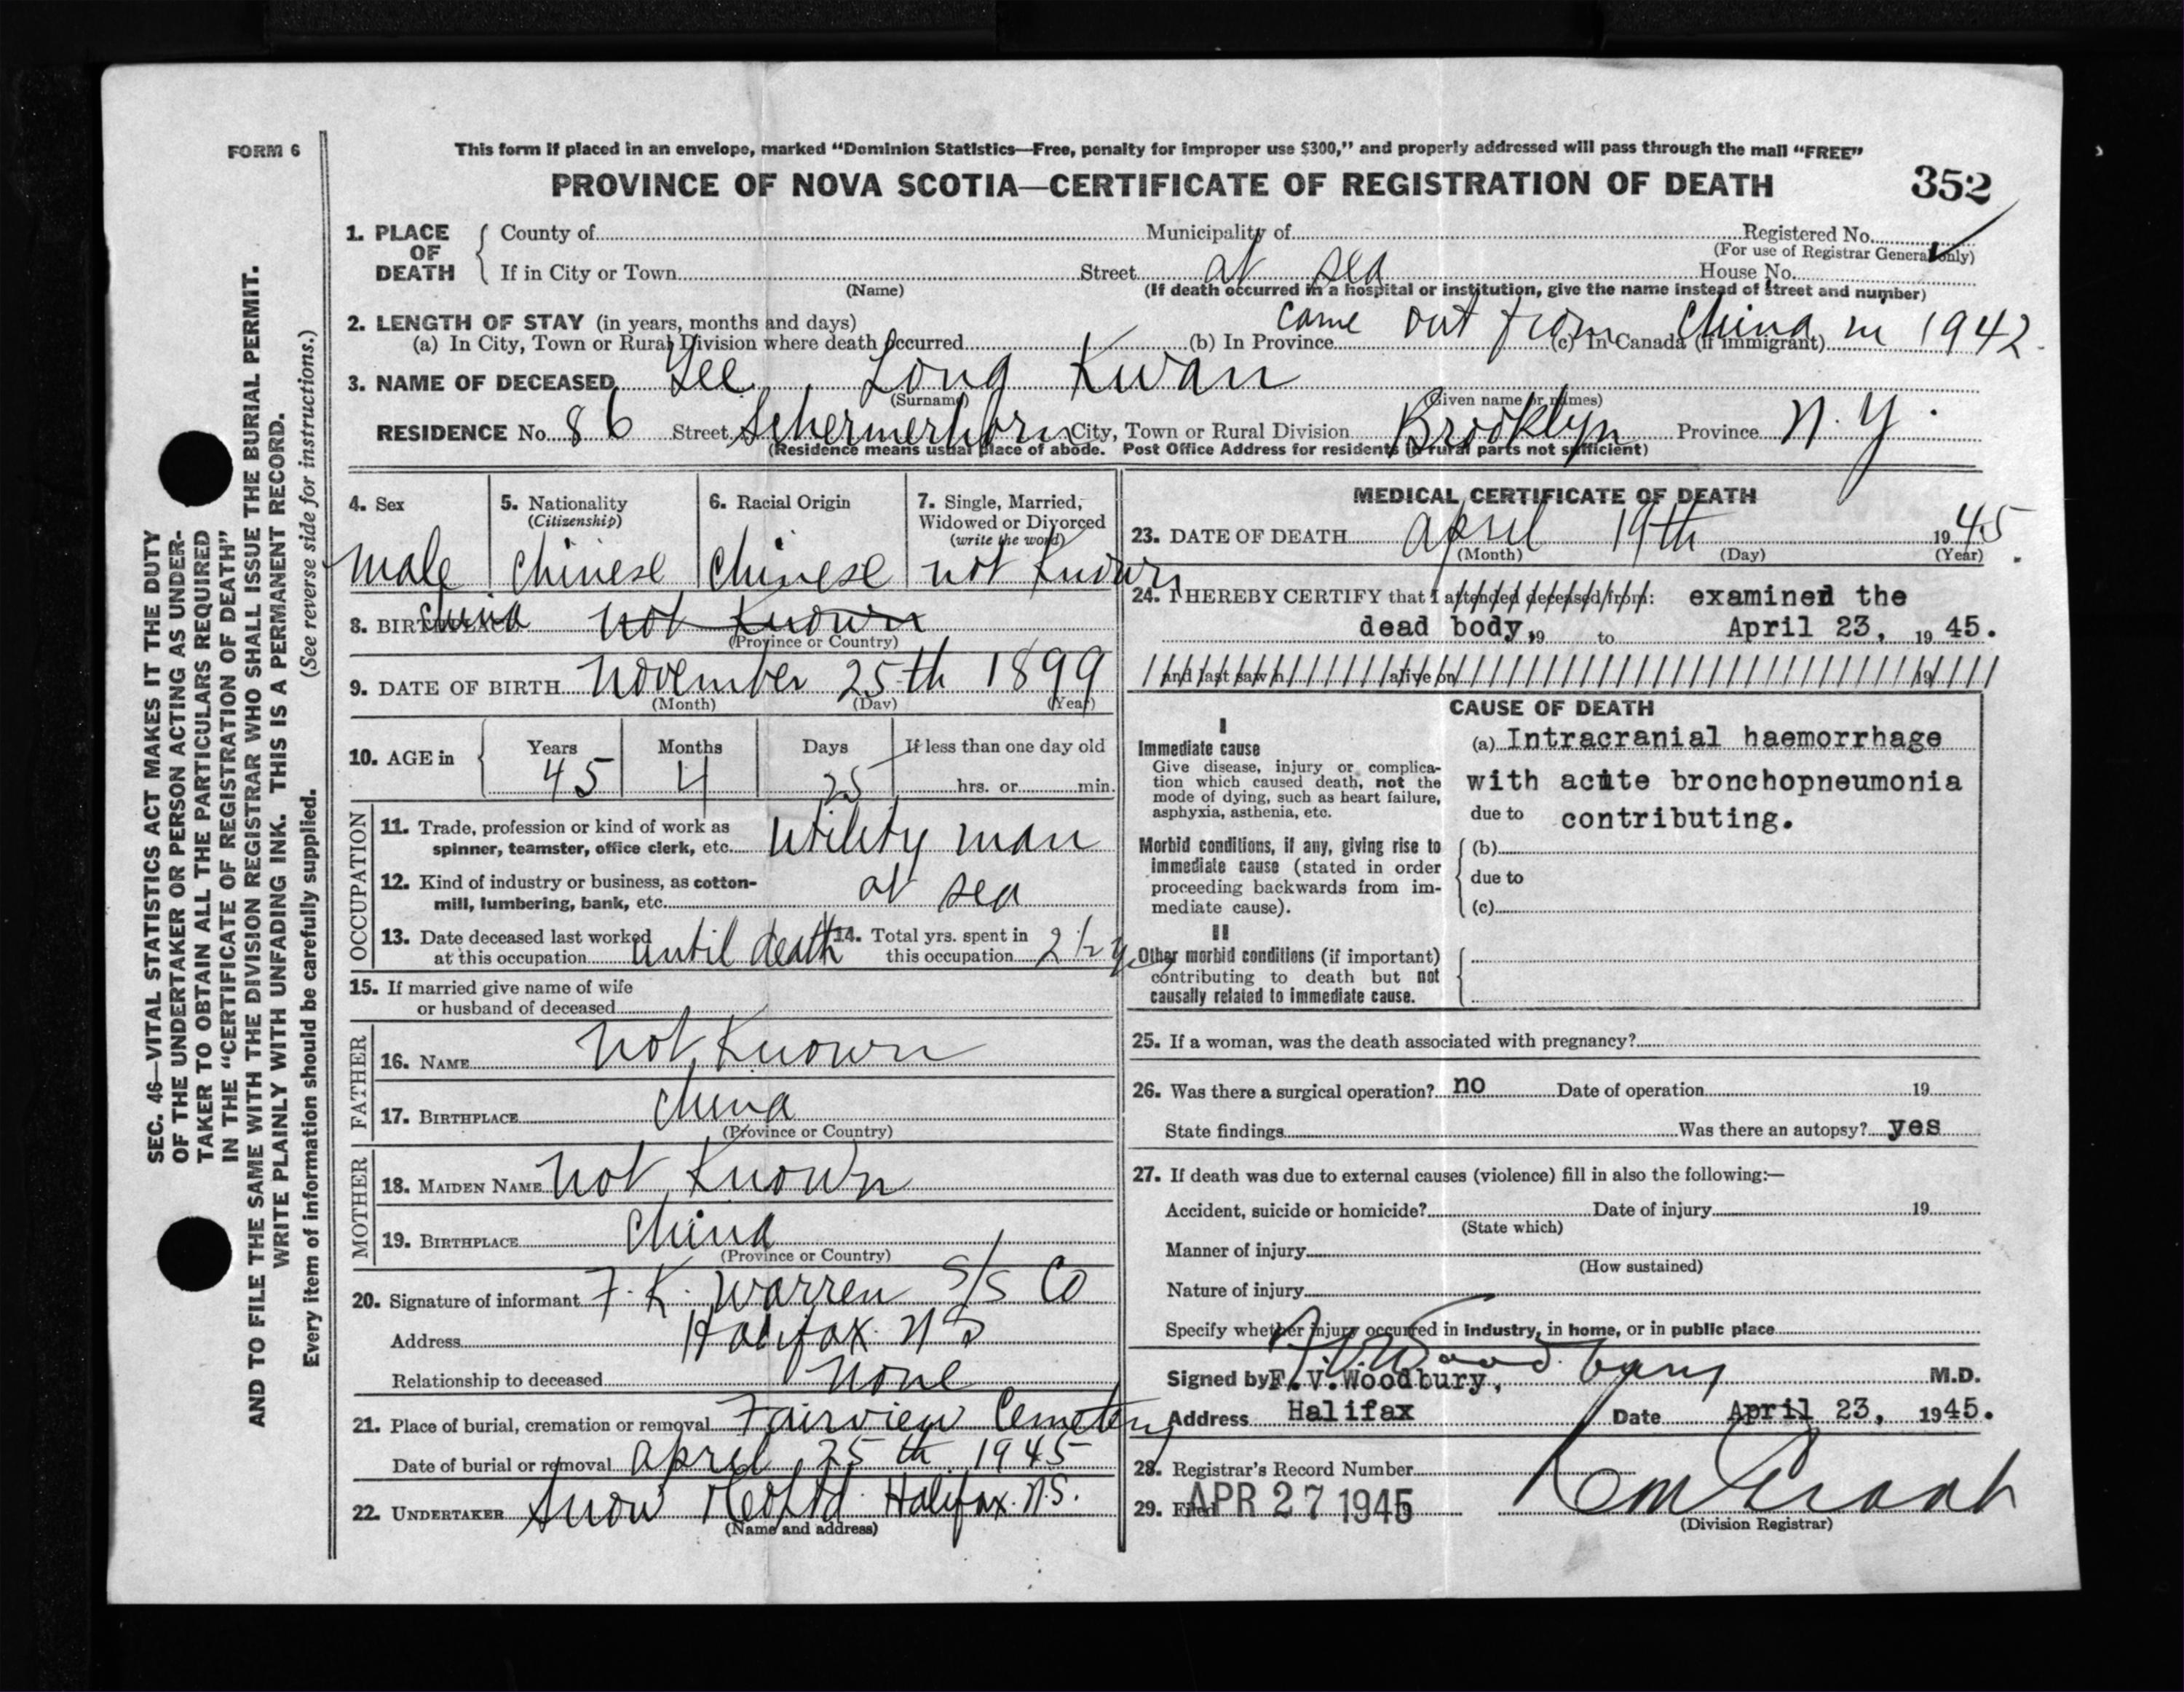 FORM 6
This form if placed in an envelope, marked “Dominion Statistics—Free, penalty for improper use $300,” and properly addressed will pass through the mail “FREE”
PROVINCE OF NOVA SCOTIA—CERTIFICATE OF REGISTRATION OF DEATH
352
1. PLACE OF DEATH
County of
Municipality of
Registered No.
(For use of Registrar General only)
If in City or Town
Street at sea
House No.
(Name)
(If death occurred in a hospital or institution, give the name instead of street and number)
2. LENGTH OF STAY (in years, months and days)
came out from China in 1942
(a) In City, Town or Rural Division where death occurred (b) In Province (c) In Canada (if immigrant)
3. NAME OF DECEASED Lee, Long Kwan
(Surname) (Given name or names)
RESIDENCE No. 86 Street Schermerhorn City, Town or Rural Division Brooklyn Province N.Y.
(Residence means usual place of abode. Post Office Address for residents in rural parts not sufficient)
4. Sex
male
5. Nationality
(Citizenship)
Chinese
6. Racial Origin
Chinese
7. Single, Married, Widowed or Divorced
(write the word)
not Known
8. BIRTHPLACE China not Known
(Province or Country)
9. DATE OF BIRTH November 25th 1899
(Month) (Day) (Year)
10. AGE in Years 45 Months 4 Days 25 If less than one day old
hrs. or min.
OCCUPATION
11. Trade, profession or kind of work as
spinner, teamster, office clerk, etc. utility man
12. Kind of industry or business, as cotton-
mill, lumbering, bank, etc. at sea
13. Date deceased last worked
at this occupation until death
14. Total yrs. spent in
this occupation 2 1/2 yrs
15. If married give name of wife
or husband of deceased
FATHER
16. NAME not Known
17. BIRTHPLACE China
(Province or Country)
MOTHER
18. MAIDEN NAME not Known
19. BIRTHPLACE China
(Province or Country)
20. Signature of informant F. K. Warren S/S Co
Address Halifax N S
Relationship to deceased none
21. Place of burial, cremation or removal Fairview Cemetery
Date of burial or removal april 25th 1945
22. UNDERTAKER Snow & Co Ltd. Halifax. N.S.
(Name and address)
MEDICAL CERTIFICATE OF DEATH
23. DATE OF DEATH April 19th 1945.
(Month) (Day) (Year)
24. I HEREBY CERTIFY that I attended deceased from: examined the
dead body, 19 to April 23, 1945.
and last saw h alive on 19
CAUSE OF DEATH
I
Immediate cause
Give disease, injury or complica-
tion which caused death, not the
mode of dying, such as heart failure,
asphyxia, asthenia, etc.
(a) Intracranial haemorrhage
with acute bronchopneumonia
due to contributing.
Morbid conditions, if any, giving rise to
immediate cause (stated in order
proceeding backwards from im-
mediate cause).
(b)
due to
(c)
II
Other morbid conditions (if important)
contributing to death but not
causally related to immediate cause.
25. If a woman, was the death associated with pregnancy?
26. Was there a surgical operation? no Date of operation 19
State findings Was there an autopsy? yes
27. If death was due to external causes (violence) fill in also the following:—
Accident, suicide or homicide? Date of injury 19
(State which)
Manner of injury
(How sustained)
Nature of injury
Specify whether injury occurred in industry, in home, or in public place
Signed by F. V. Woodbury, M.D.
F.V. Woodbury
Address Halifax Date April 23, 1945.
28. Registrar's Record Number
29. Filed APR 27 1945
(Division Registrar)
SEC. 46—VITAL STATISTICS ACT MAKES IT THE DUTY
OF THE UNDERTAKER OR PERSON ACTING AS UNDER-
TAKER TO OBTAIN ALL THE PARTICULARS REQUIRED
IN THE “CERTIFICATE OF REGISTRATION OF DEATH”
AND TO FILE THE SAME WITH THE DIVISION REGISTRAR WHO SHALL ISSUE THE BURIAL PERMIT.
WRITE PLAINLY WITH UNFADING INK. THIS IS A PERMANENT RECORD.
Every item of information should be carefully supplied. (See reverse side for instructions.)